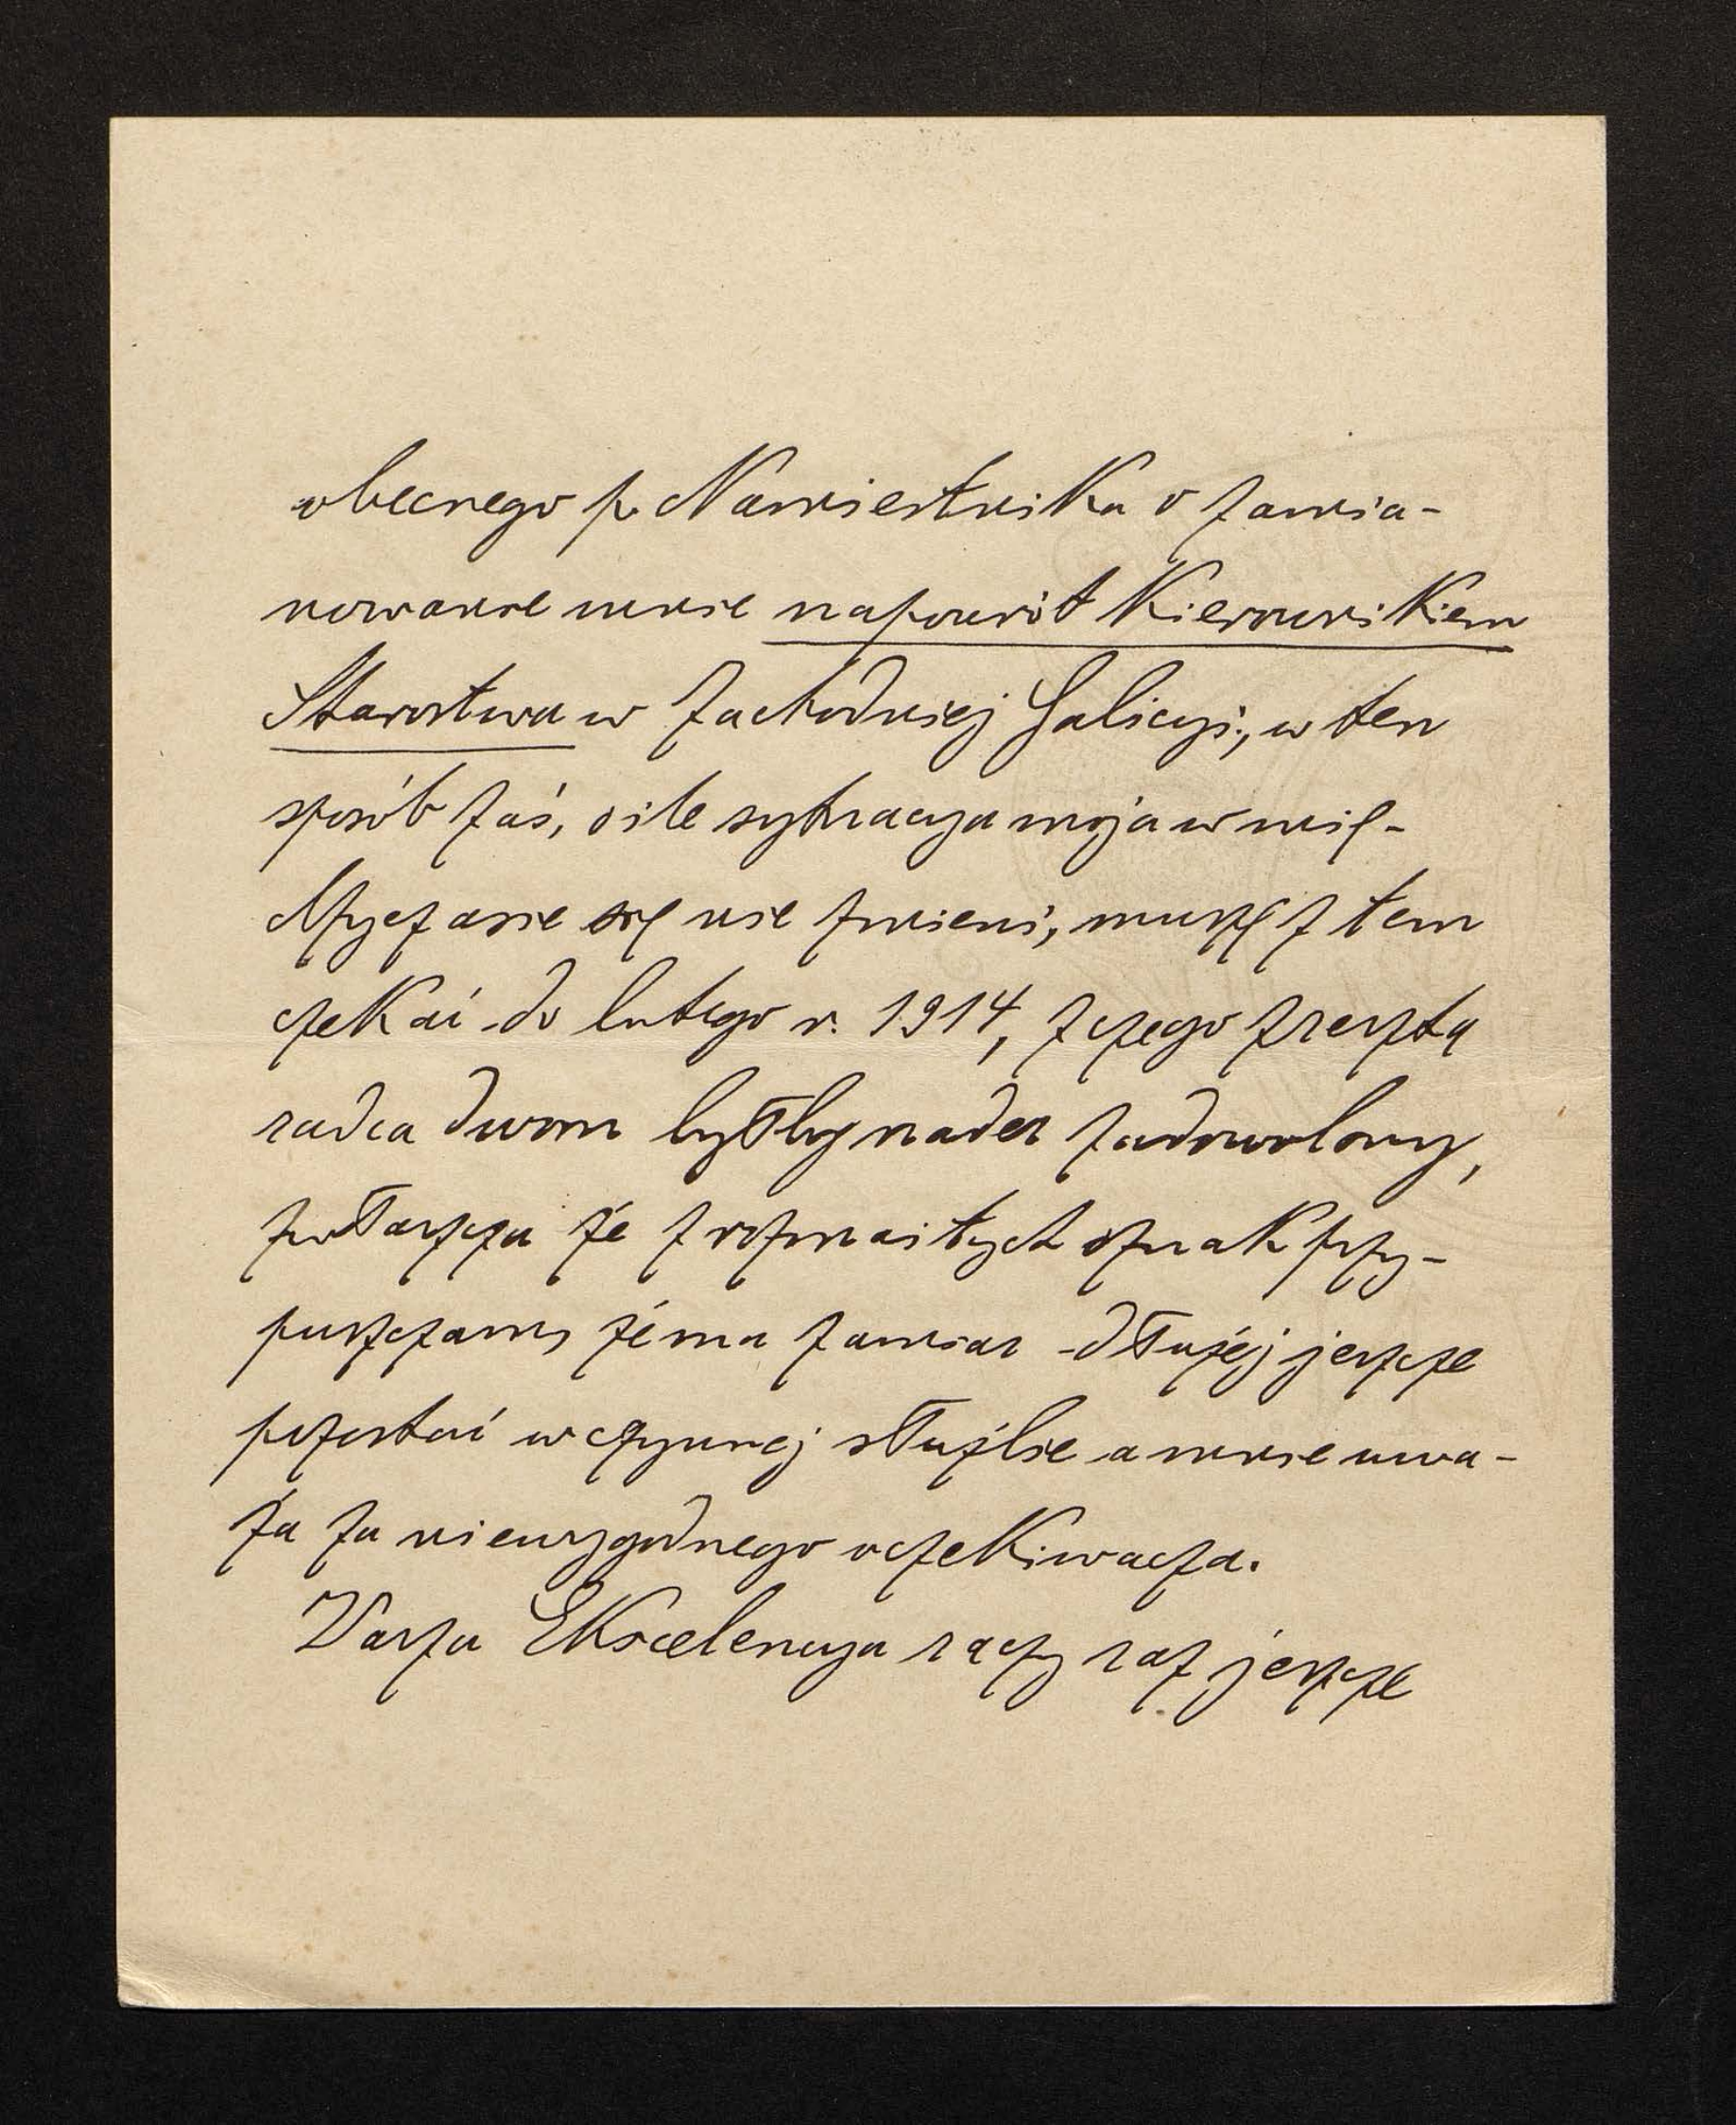 obecnego p. Namiestnika o zamia-
nowanie mnie napowrót Kierownikiem
Starostwa w Zachodniej Galicyi, w ten
sposób zaś, o ile sytuacya moja w mię-
dzyczasie się nie zmieni, muszę z tem
czekać do lutego r. 1914, z czego zresztą
radca dworu byłby nader zadowolony,
zwłaszcza że z rozmaitych oznak przy-
puszczam, że ma zamiar dłużej jeszcze
pozostać w czynnej służbie a mnie uwa-
ża za niewygodnego oczekiwacza.
Wasza Ekscelencya raczy raz jeszcze